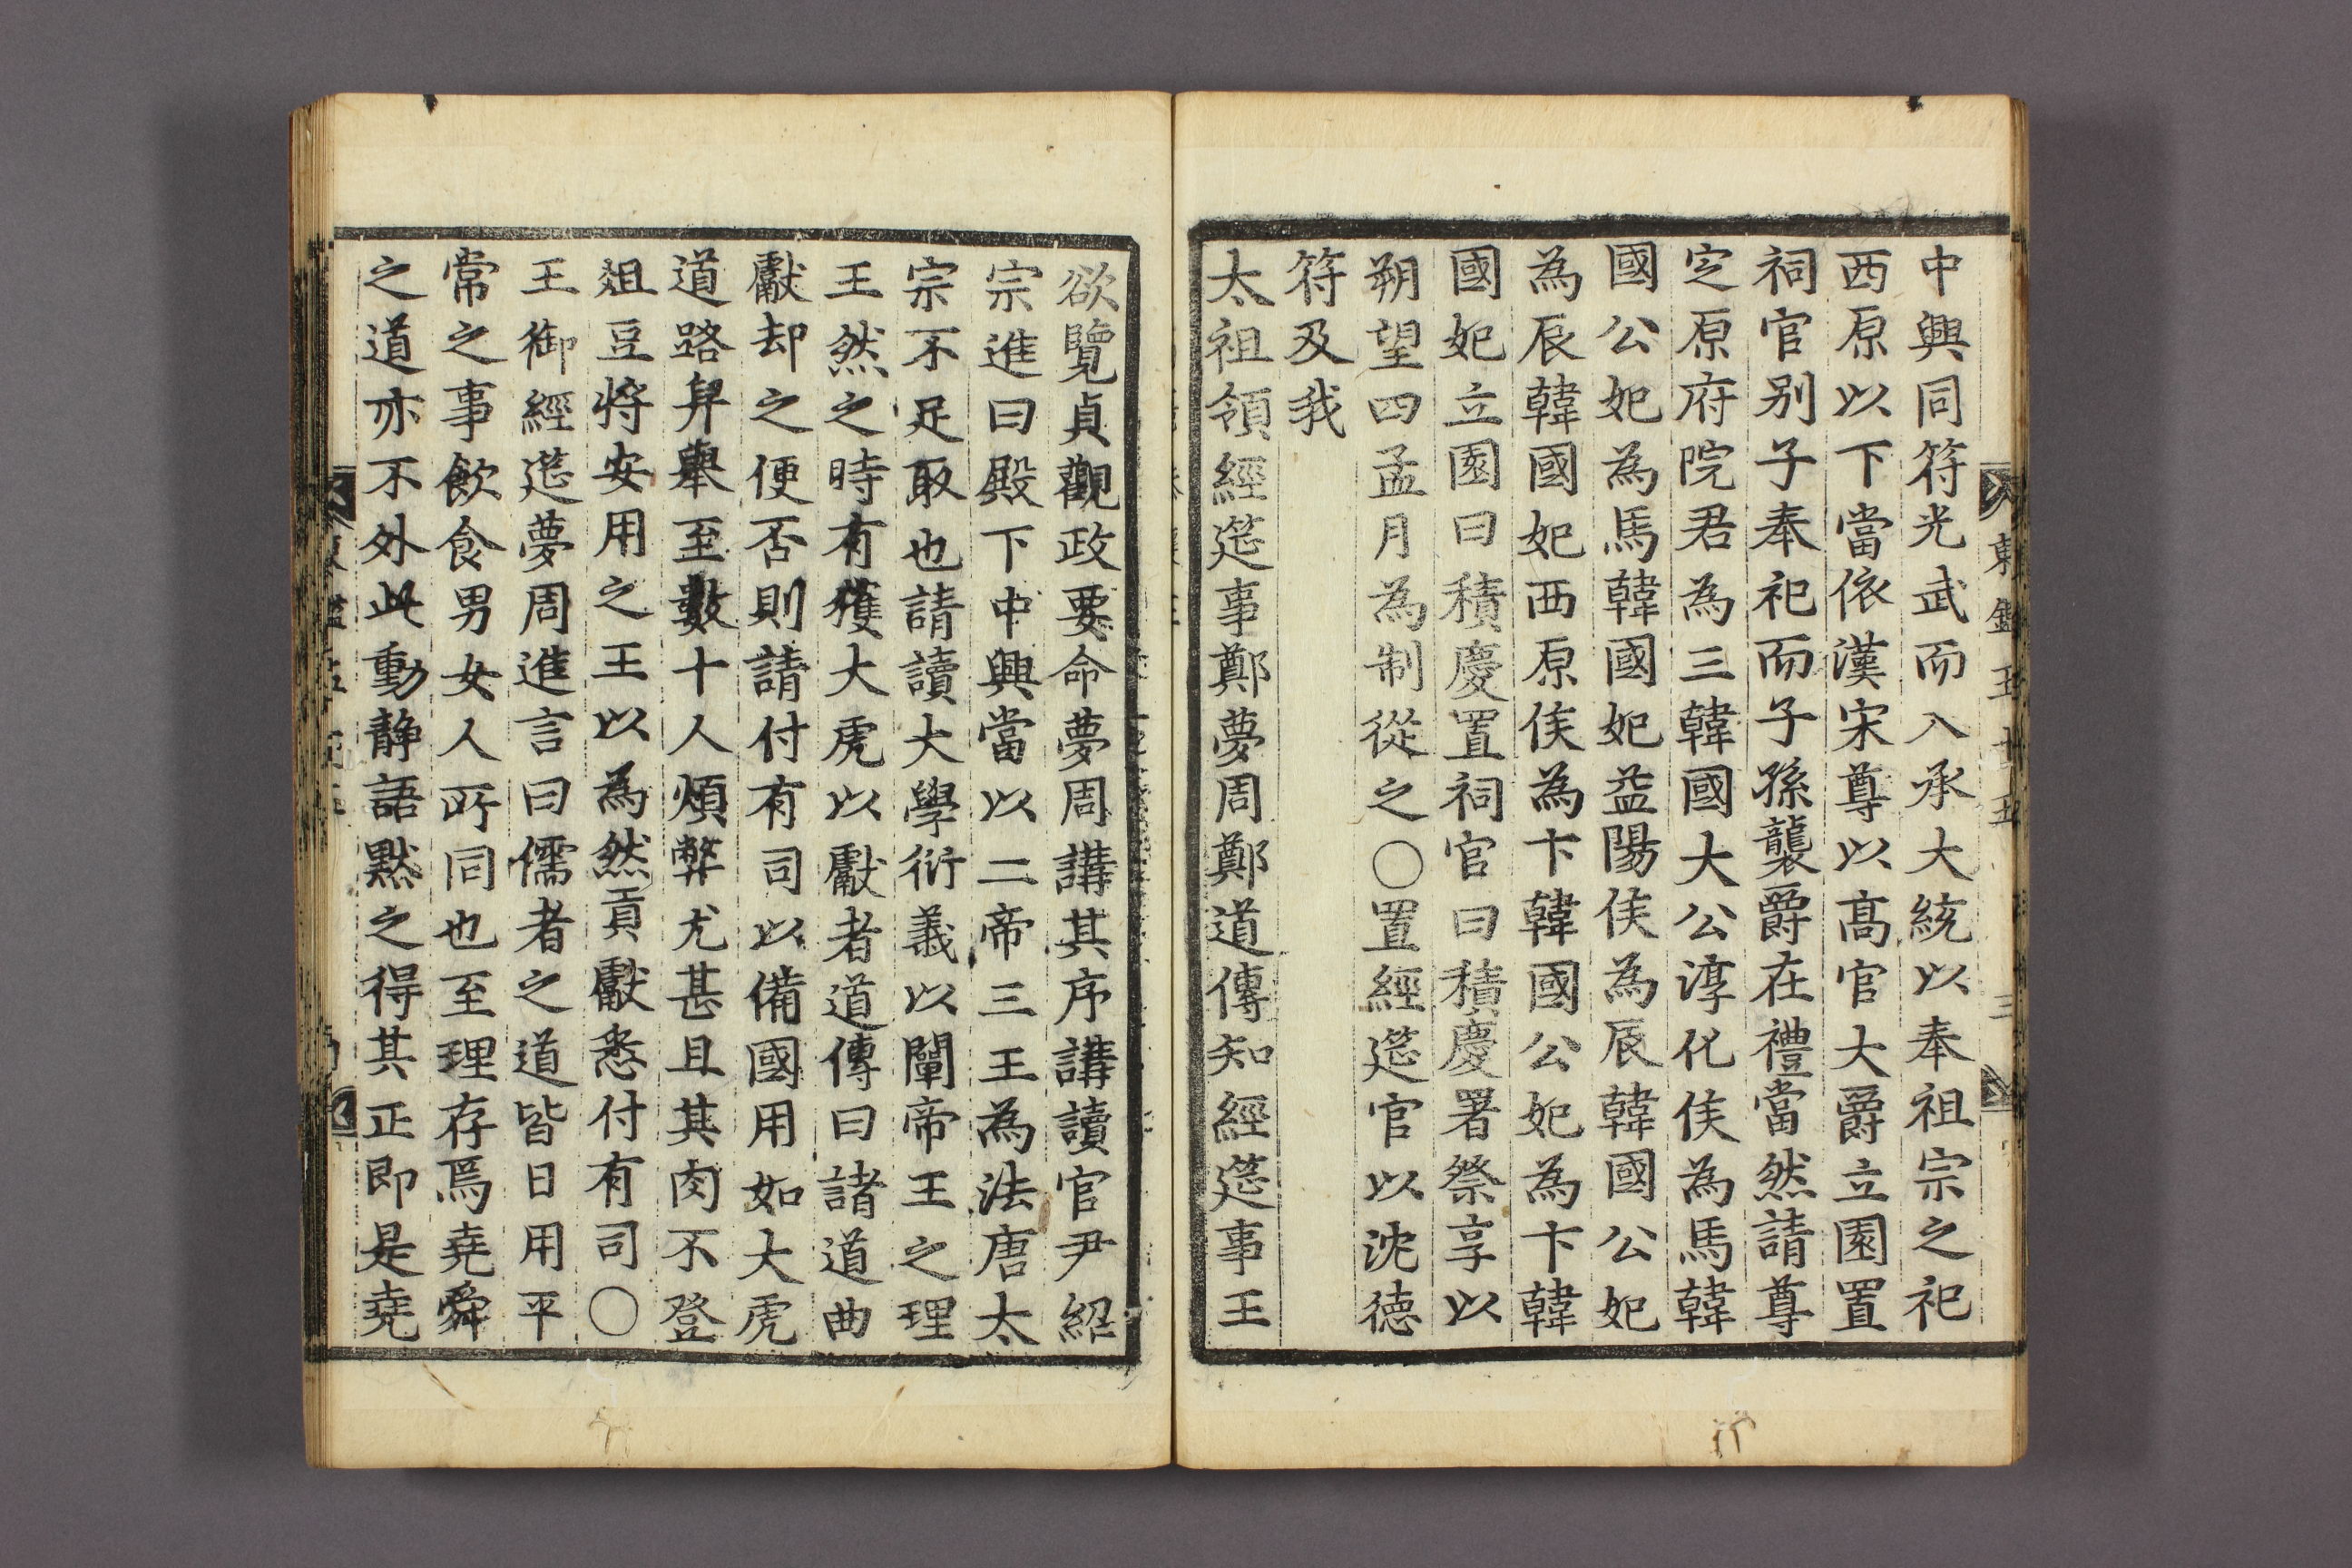 中興同符光武而入承大統以奉祖宗之祀
西原以下當依漢宋尊以高官大爵立園置
祠官别子奉祀而子孫襲爵在禮當然請尊
定原府院君為三韓國大公淳化侯為馬韓
國公妃為馬韓國妃益陽侯為辰韓國公妃
為辰韓國妃西原侯為卞韓國公妃為卞韓
國妃立園曰積慶置祠官曰積慶署祭享以
朔望四孟月為制從之〇置經筵官以沈德
符及我
太祖領經筵事鄭夢周鄭道傳知經筵事王
欲覽貞觀政要命夢周講其序講讀官尹紹
宗進曰殿下中興當以二帝三王為法唐太
宗不足取也請讀大學衍義以闡帝王之理
王然之時有獲大虎以獻者道傳曰諸道曲
獻却之便否則請付有司以備國用如大虎
道路舁舉至數十人煩弊尤甚且其肉不登
俎豆將安用之王以為然貢獻悉付有司〇
王御經筵夢周進言曰儒者之道皆日用平
常之事飲食男女人所同也至理存焉堯舜
之道亦不外此動静語默之得其正即是堯